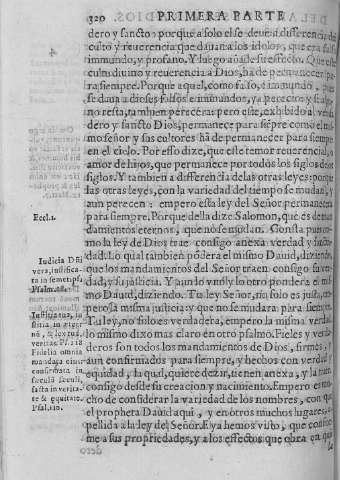 320 PRIMERA PARTE
dero y sancto: porque a solo el se deue a differencia del
culto y reuerencia que dauan a los idolos, que era falso
immundo, y profano. Y luego añade su effecto. Que este
culto diuino y reuerencia a Dios, ha de permanecer pa
ra siempre. Porque aquel, como falso, è immundo, que
se daua a dioses falsos è immundos, ya perecio y si algo
no resta, tambien perecera: pero este, exhibido al verda
dero y sancto Dios, permanece para siẽpre como el mis
mo señor y sus cultores hã de permanecer para siempre
en el cielo. Por esso dize, que este temor reuerencial, o
amor de hijos, que permanece por todos los siglos de los
siglos. Y tambien a differencia de las otras leyes: porque
las otras leyes, con la variedad del tiempo se mudan, y
aun perecen: empero esta ley del Señor permanece
para siempre. Porque della dize Salomon, que es de man
damientos eternos, que no se mudan. Consta pues co
mo la ley de Dios trae consigo anexa verdad y justi
dad. Lo qual tambien põdera el mismo Dauid, diziendo,
que los mandamientos del Señor traen consigo su ver
dad, y su justicia. Y aun lo vno y lo otro pondera el mis
mo Dauid, diziendo. Tu ley Señor, no solo es justa, em
pero la misma justicia: y que no se mudara para siempre.
Tu ley, no solo es verdadera, empero la misma verdad.
Lo mismo dize mas claro en otro psalmo. Fieles y verda
deros son todos los mandamientos de Dios, firmes, y
aun confirmados para siempre, y hechos con verdad y
equidad, la qual, quiere dezir, tienen anexa, y la traen
consigo desde su creacion y nacimiento. Empero es mu
cho de considerar la variedad de los nombres, con que
el propheta Dauid aqui, y en otros muchos lugares, a
pellida a la ley del Señor. E ya hemos visto, que confor
me a sus propriedades, y a los effectos que obra en qua
Eccl.1.
Iudicia Dñi
vera, iustifica
ta in semetipsa
Psalm.18.
Iustitia tua, iu
stitia in æter
nũ, & lex tua
veritas Ps.118
Fidelia omnia
mandata eius:
confirmata in
sæculũ sæculi,
facta in verita
te & equitate.
Psal.110.